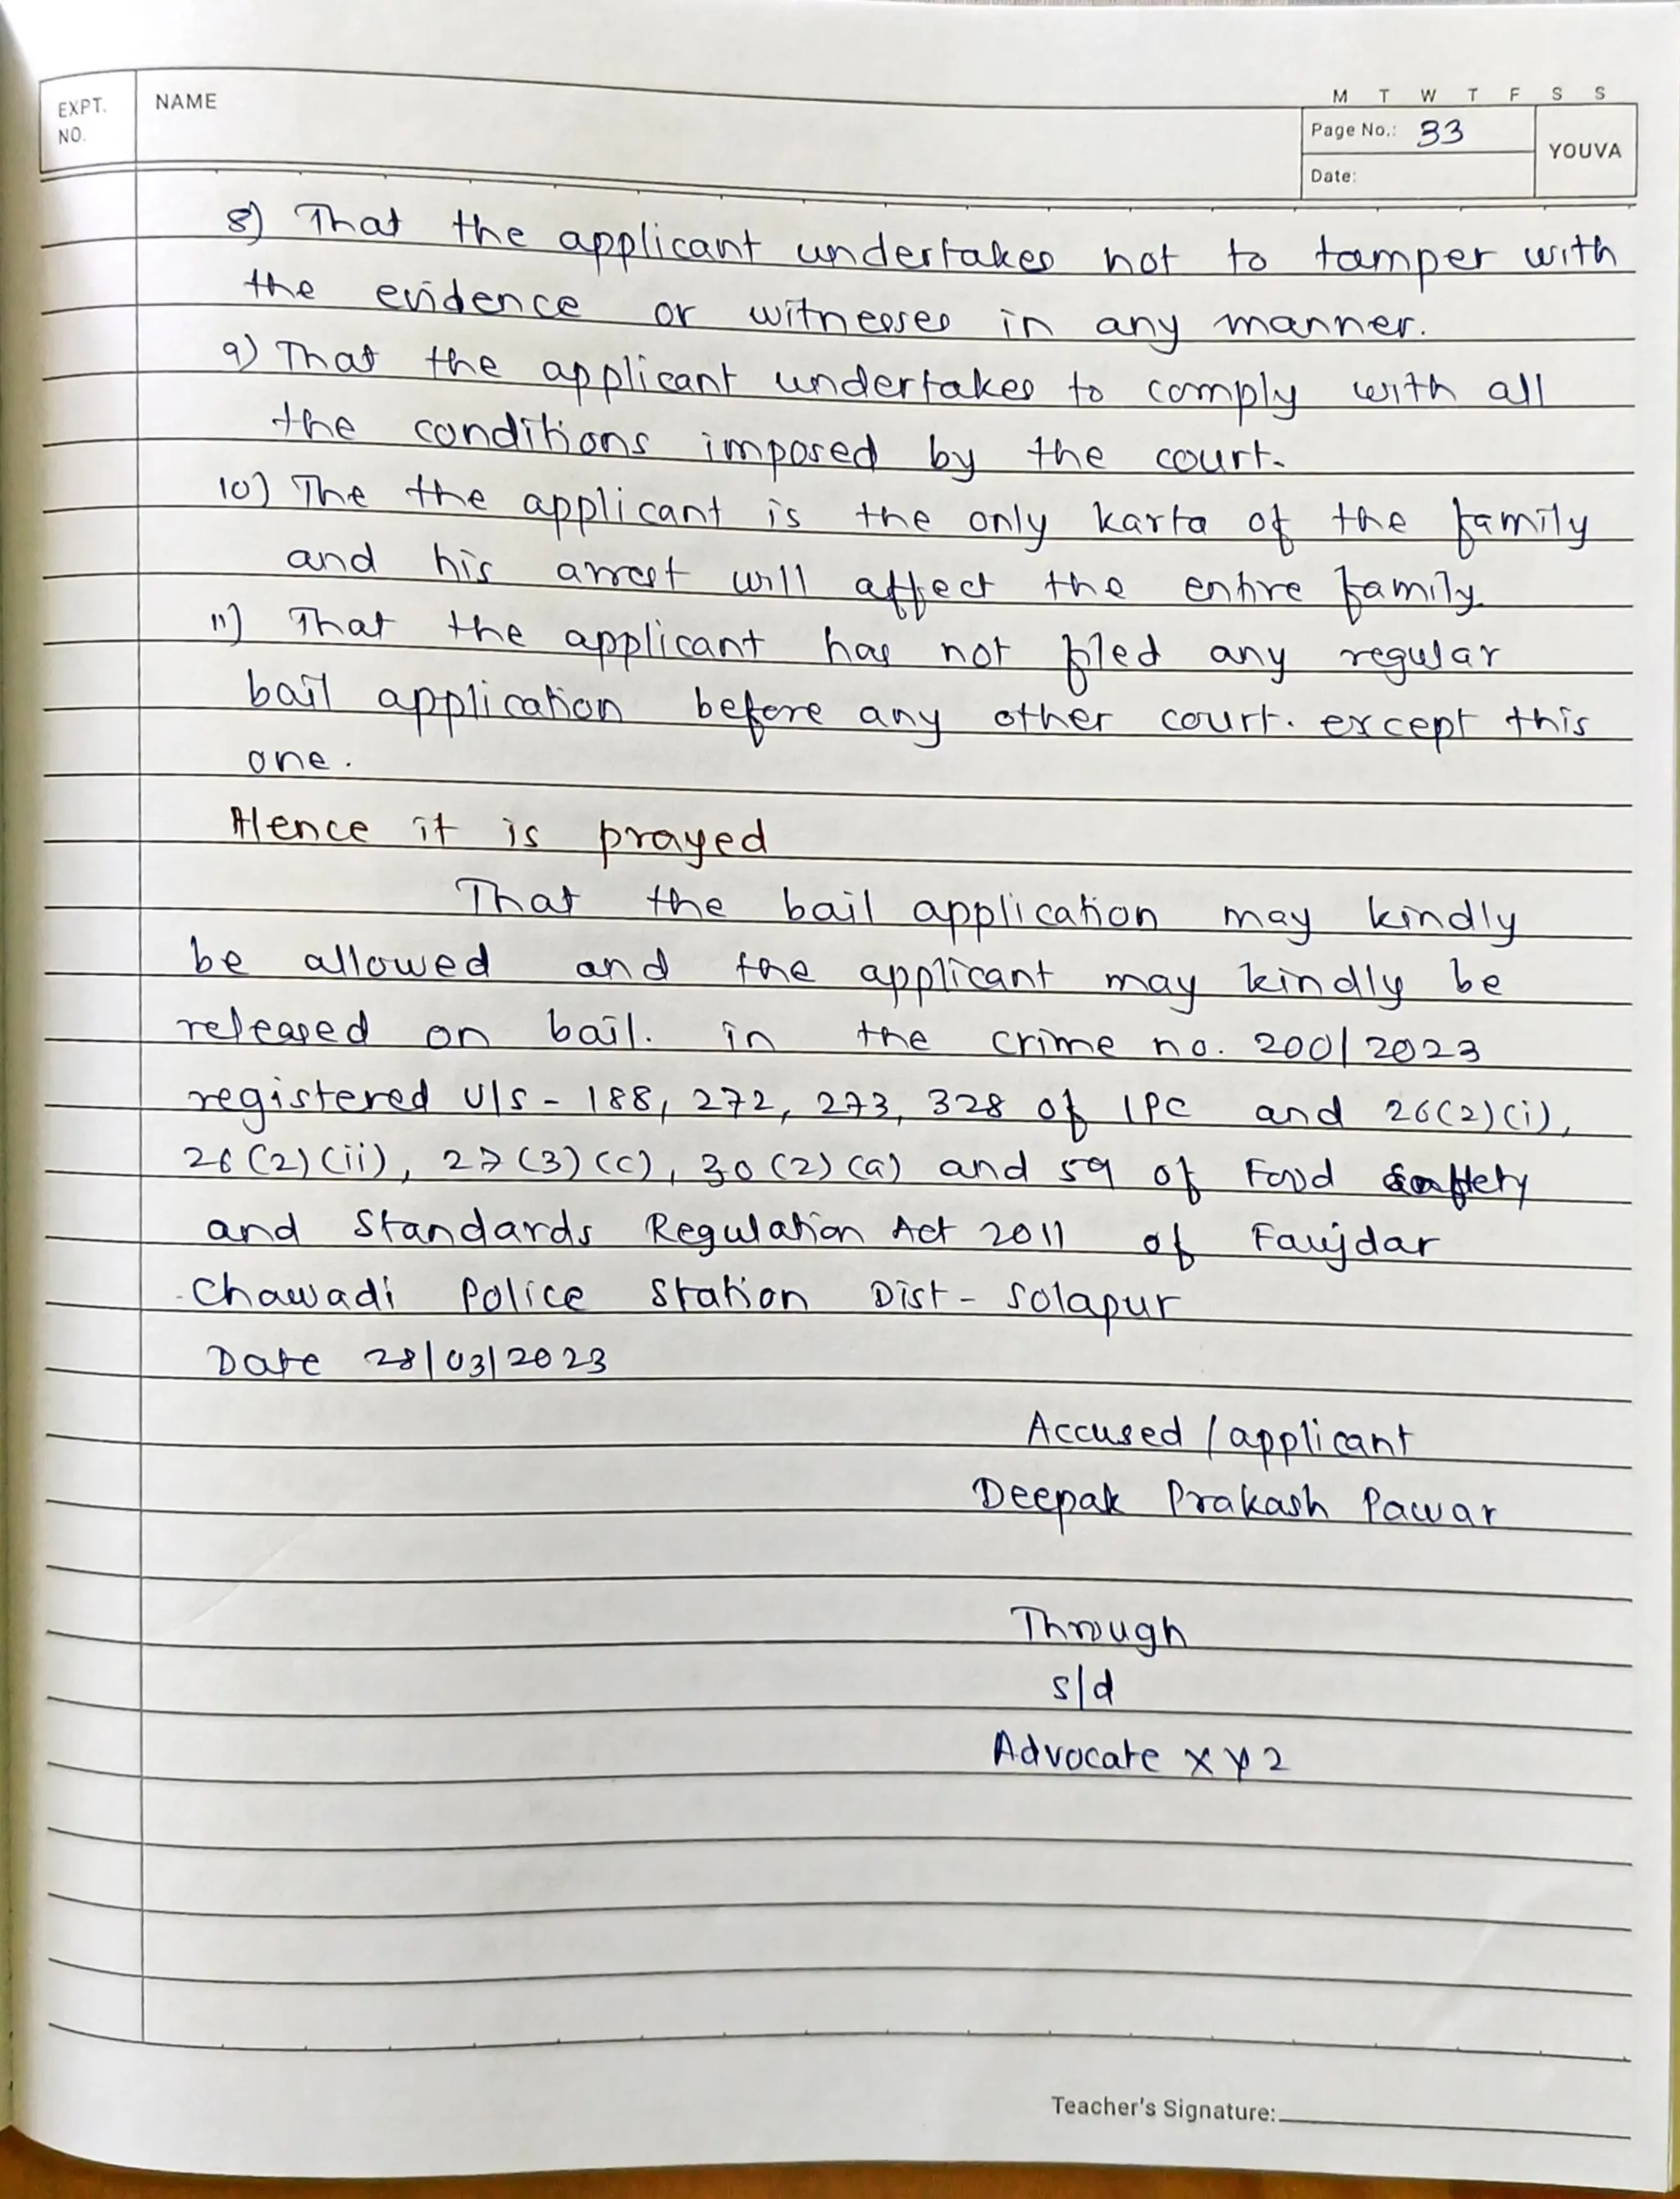 EXPT. NO.
NAME
M T W T F S S
Page No.: 33
YOUVA
Date:
8) That the applicant undertakes not to tamper with
the evidence or witnesses in any manner.
9) That the applicant undertakes to comply with all
the conditions imposed by the court.
10) The the applicant is the only karta of the family
and his arrest will affect the entire family.
11) That the applicant has not filed any regular
bail application before any other court. except this
one.
Hence it is prayed
That the bail application may kindly
be allowed and the applicant may kindly be
released on bail. in the crime no. 200/2023
registered U/S - 188, 272, 273, 328 of IPC and 26(2)(i),
26(2)(ii), 27(3)(c), 30(2)(a) and 59 of Food saftety
and Standards Regulation Act 2011 of Faujdar
Chawadi Police Station Dist - Solapur
Date 28/03/2023
Accused / applicant
Deepak Prakash Pawar
Through
s/d
Advocate XYZ
Teacher's Signature: